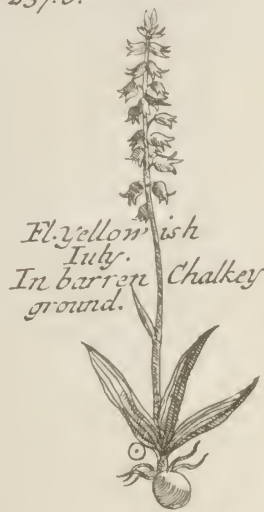 Fl. Yellowish
Iuly.
In barren Chalkey
ground.